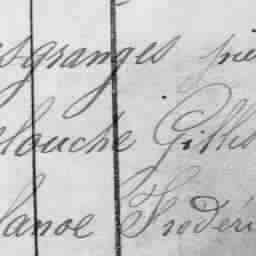 sgranges
louche Gilles
lanoe Frédéri